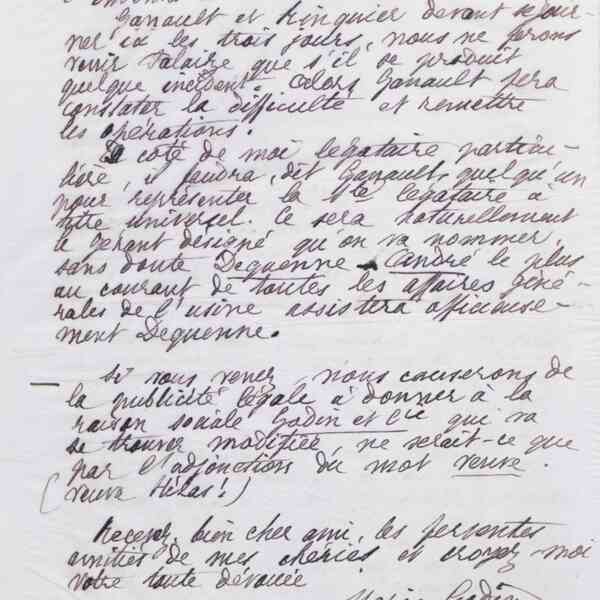 Ganault et Pinquier devant séjour-
ner ici les trois jours, nous ne ferons
venir Salaire que s'il se produit
quelque incident. Alors Ganault fera
constater la difficulté et remettre
les opérations.
A côté de moi légataire particu-
lière, il faudra, dit Ganault, quelqu'un
pour représenter la Sté légataire à
titre universel. Ce sera naturellement
le gérant désigné qu'on va nommer,
sans doute Dequenne. André le plus
au courant de toutes les affaires géné-
rales de l'usine assistera officieuse-
ment Dequenne.
Si vous venez, nous causerons de
la publicité légale à donner à la
raison sociale Godin et Cie qui va
se trouver modifiée, ne serait-ce que
par l'adjonction du mot veuve.
(veuve hélas!)
Recevez, bien cher ami, les ferventes
amitiés de mes chéries et croyez-moi
votre toute dévouée
Marie Godin